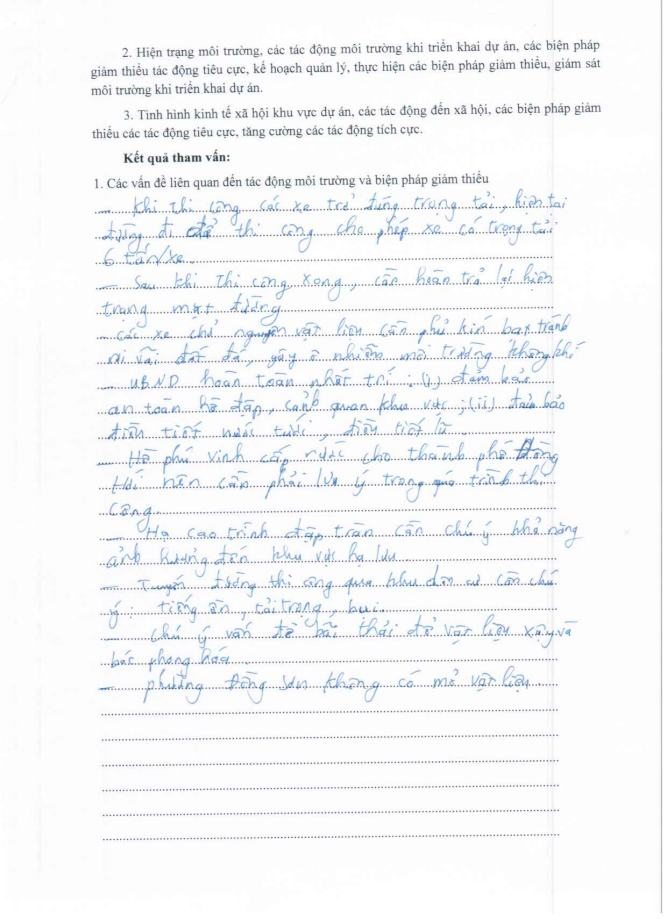 2. Hiện trạng môi trường, các tác động môi trường khi triển khai dự án, các biện pháp
giảm thiểu tác động tiêu cực, kế hoạch quản lý, thực hiện các biện pháp giảm thiểu, giám sát
môi trường khi triển khai dự án.
3. Tình hình kinh tế xã hội khu vực dự án, các tác động đến xã hội, các biện pháp giảm
thiểu các tác động tiêu cực, tăng cường các tác động tích cực.
Kết quả tham vấn:
1. Các vấn đề liên quan đến tác động môi trường và biện pháp giảm thiểu
- Khi thi công các xe trở đúng trọng tải, hiện tại
đường đi để thi công cho phép xe có trọng tải
6 tấn/xe.
- Sau khi thi công xong, cần hoàn trả lại hiện
trạng mặt đường
- Các xe chở nguyên vật liệu cần phủ kín bạt tránh
rơi vãi đất đá, gây ô nhiễm môi trường không khí
- UBND hoàn toàn nhất trí: (i) đảm bảo
an toàn hồ đập, cảnh quan khu vực; (ii) đảm bảo
điều tiết nước tưới, điều tiết lũ
- Hồ phú vinh cấp nước cho thành phố Đồng
Hới nên cần phải lưu ý trong quá trình thi
công.
- Hạ cao trình đập tràn cần chú ý khả năng
ảnh hưởng đến khu vực hạ lưu
- Tuyến đường thi công qua khu dân cư cần chú
ý: tiếng ồn, tải trọng, bụi.
- Chú ý vấn đề bãi thải để vật liệu xây và
bóc phong hóa
- phường Đồng Sơn không có mỏ vật liệu.